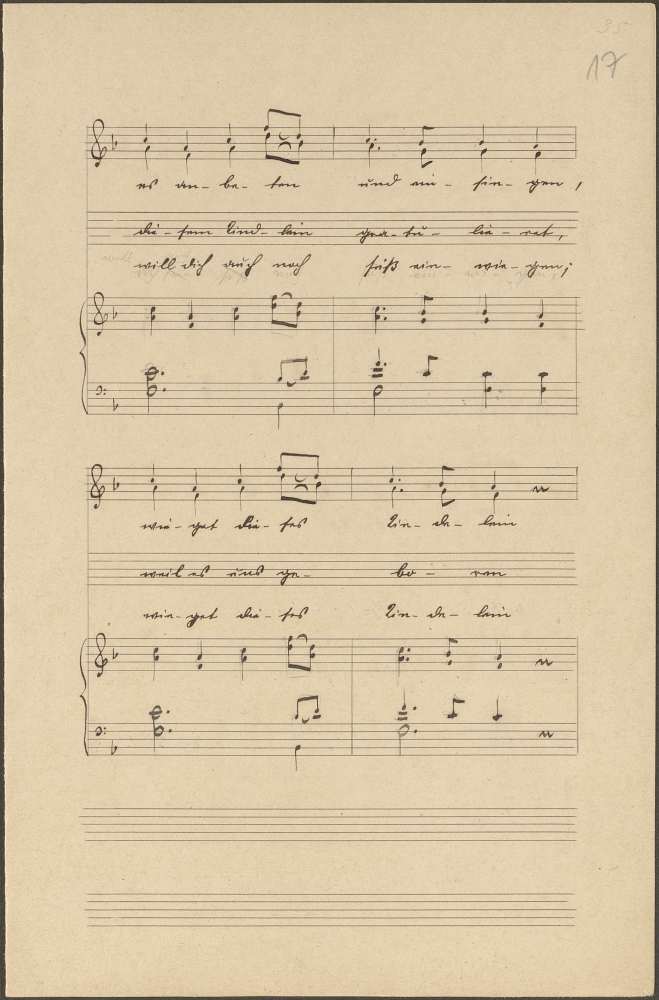 35
17
es an- be- ten und ein- sin- gen,
die- sem Kind- lein gra- tu- lie- ret,
will dich auch noch süß ein- wie- gen;
wie- get die- ses Kin- de- lein
weil es uns ge- bo- ren
wie- get die- ses Kin- de- lein